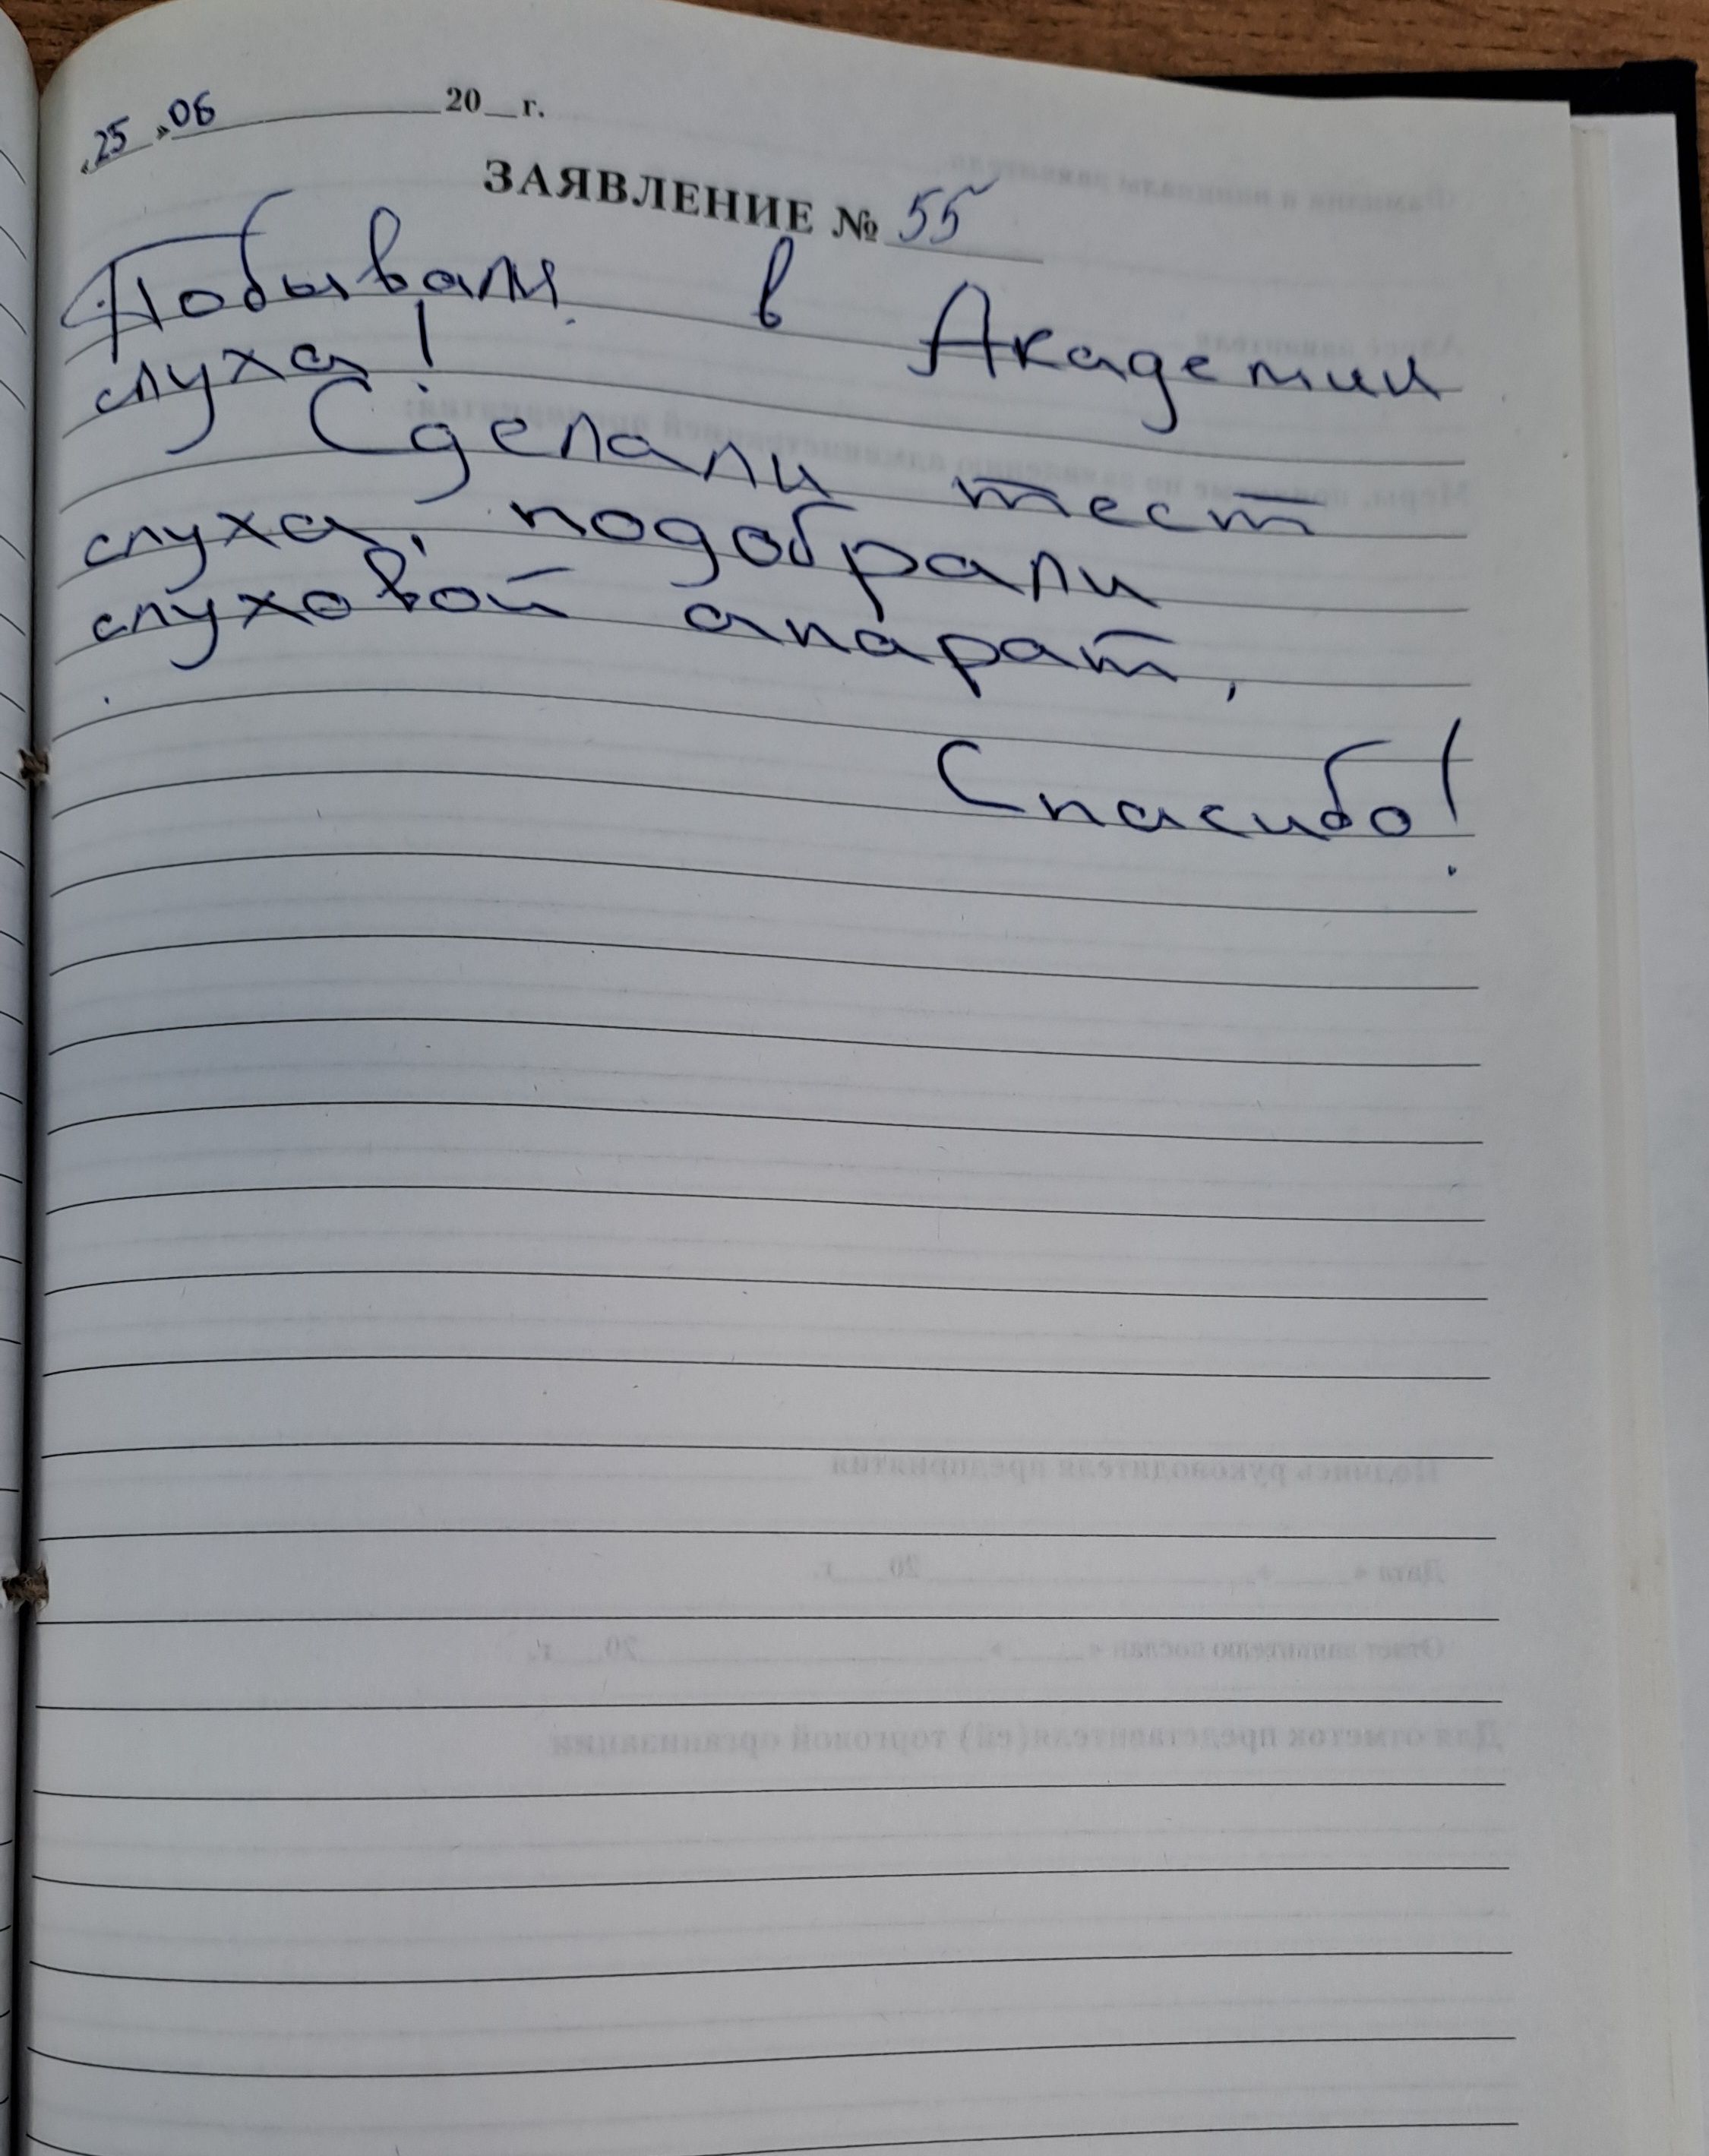 «25» 06 20__г.
ЗАЯВЛЕНИЕ № 55
Побывали в Академии
слуха! Сделали тест
слуха, подобрали
слуховой апарат,
Спасибо!